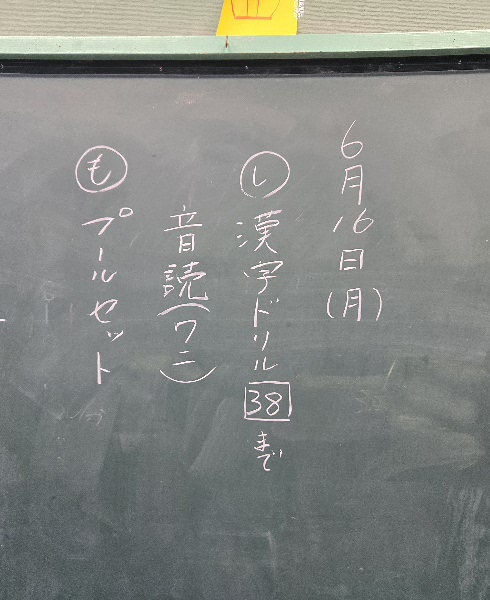 6月16日(月)
し 漢字ドリル 38 まで
音読(ワニ)
も プールセット